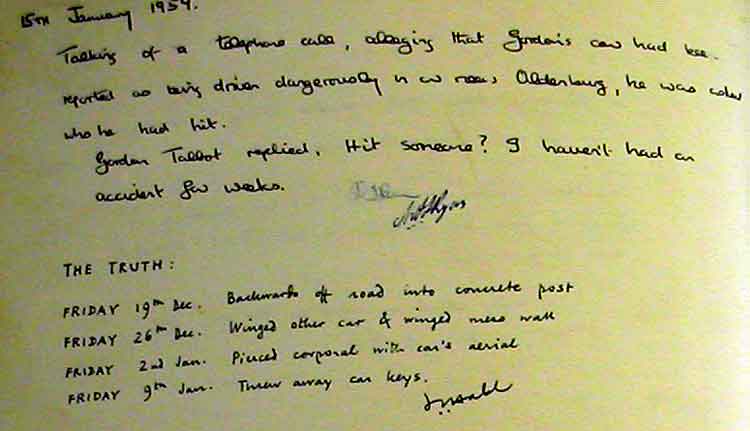 15TH January 1959.
Talking of a telephone call, alleging that Gordon's car had bee-
reported as being driven dangerously in or near Oldenburg, he was asked
who he had hit.
Gordon Talbot replied, Hit someone? I haven't had an
accident for weeks.
THE TRUTH:
FRIDAY 19th Dec. Backwards off road into concrete post
FRIDAY 26th Dec. Winged other car & winged mess wall
FRIDAY 2nd Jan. Pierced corporal with car's aerial
FRIDAY 9th Jan. Threw away car keys.